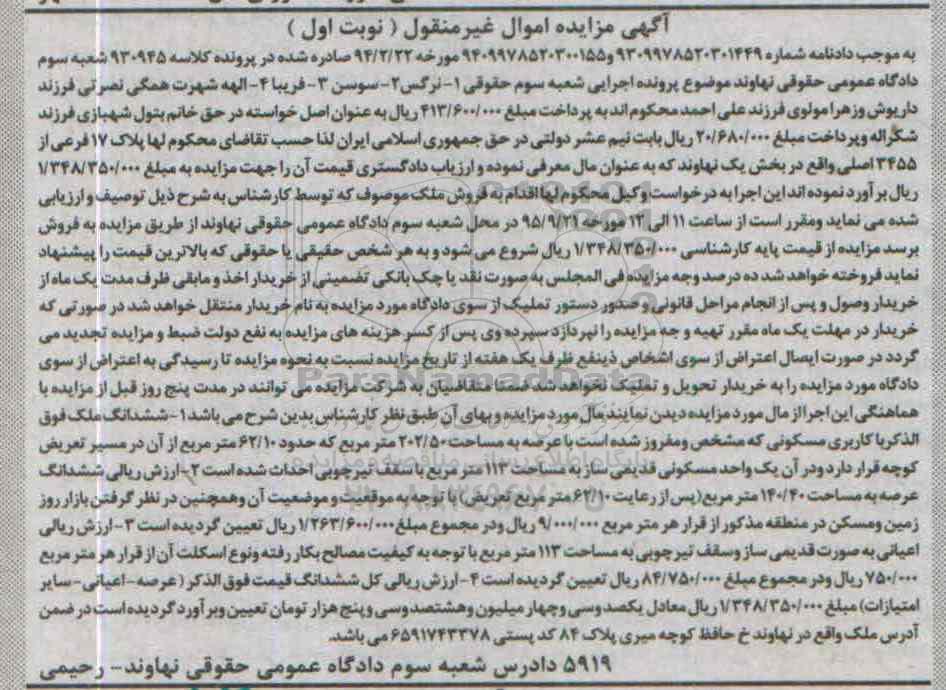 آگهی مزایده اموال غیرمنقول ( نوبت اول )
به موجب دادنامه شماره ۹۳۰۹۹۷۸۵۲۰۳۰۱۴۴۹ و۹۴۰۹۹۷۸۵۲۰۳۰۰۱۵۵ مورخه ۹۴/۲/۲۲ صادره شده در پرونده کلاسه ۹۳۰۹۴۵ شعبه سوم
دادگاه عمومی حقوقی نهاوند موضوع پرونده اجرایی شعبه سوم حقوقی ۱-نرگس۲-سوسن ۳-فریبا ۴-الهه شهرت همگی نصرتی فرزند
داریوش وزهرا مولوی فرزند علی احمد محکوم اند به پرداخت مبلغ ۴۱۳/۶۰۰/۰۰۰ ریال به عنوان اصل خواسته در حق خانم بتول شهبازی فرزند
شکراله وپرداخت مبلغ ۲۰/۶۸۰/۰۰۰ ریال بابت نیم عشر دولتی در حق جمهوری اسلامی ایران لذا حسب تقاضای محکوم لها پلاک ۱۷ فرعی از
۳۴۵۵ اصلی واقع در بخش یک نهاوند که به عنوان مال معرفی نموده و ارزیاب دادگستری قیمت آن را جهت مزایده به مبلغ ۱/۳۴۸/۳۵۰/۰۰۰
ریال بر آورد نموده اند این اجرا به درخواست وکیل محکوم لها اقدام به فروش ملک موصوف که توسط کارشناس به شرح ذیل توصیف و ارزیابی
شده می نماید ومقرر است از ساعت ۱۱ الی ۱۲ مورخه ۹۵/۹/۲۱ در محل شعبه سوم دادگاه عمومی حقوقی نهاوند از طریق مزایده به فروش
برسد مزایده از قیمت پایه کارشناسی ۱/۳۴۸/۳۵۰/۰۰۰ ریال شروع می شود و به هر شخص حقیقی یا حقوقی که بالاترین قیمت را پیشنهاد
نماید فروخته خواهد شد ده درصد وجه مزایده فی المجلس به صورت نقد یا چک بانکی تضمینی از خریدار اخذ و مابقی ظرف مدت یک ماه از
خریدار وصول و پس از انجام مراحل قانونی و صدور دستور تملیک از سوی دادگاه مورد مزایده به نام خریدار منتقل خواهد شد در صورتی که
خریدار در مهلت یک ماه مقرر تهیه و جه مزایده را نپردازد سپرده وی پس از کسر هزینه های مزایده به نفع دولت ضبط و مزایده تجدید می
گردد در صورت ایصال اعتراض از سوی اشخاص ذینفع ظرف یک هفته از تاریخ مزایده نسبت به نحوه مزایده تا رسیدگی به اعتراض از سوی
دادگاه مورد مزایده را به خریدار تحویل و تملیک نخواهد شد ضمنا متقاضیان به شرکت مزایده می توانند در مدت پنج روز قبل از مزایده با
هماهنگی این اجرا از مال مورد مزایده دیدن نمایند مال مورد مزایده و بهای آن طبق نظر کارشناس بدین شرح می باشد ۱-ششدانگ ملک فوق
الذکر با کاربری مسکونی که مشخص ومفروز شده است با عرصه به مساحت ۲۰۲/۵۰ متر مربع که حدود ۶۲/۱۰ متر مربع از آن در مسیر تعریض
کوچه قرار دارد ودر آن یک واحد مسکونی قدیمی ساز به مساحت ۱۱۳ متر مربع با سقف تیرچوبی احداث شده است ۲-ارزش ریالی ششدانگ
عرصه به مساحت ۱۴۰/۴۰ متر مربع(پس از رعایت ۶۲/۱۰متر مربع تعریض) با توجه به موقعیت و موضعیت آن وهمچنین در نظر گرفتن بازار روز
زمین ومسکن در منطقه مذکور از قرار هر متر مربع ۹/۰۰۰/۰۰۰ ریال ودر مجموع مبلغ ۱/۲۶۳/۶۰۰/۰۰۰ ریال تعیین گردیده است ۳-ارزش ریالی
اعیانی به صورت قدیمی ساز وسقف تیرچوبی به مساحت ۱۱۳ متر مربع با توجه به کیفیت مصالح بکار رفته ونوع اسکلت آن از قرار هر متر مربع
۷۵۰/۰۰۰ ریال ودر مجموع مبلغ ۸۴/۷۵۰/۰۰۰ ریال تعیین گردیده است ۴-ارزش ریالی کل ششدانگ قیمت فوق الذکر (عرصه-اعیانی-سایر
امتیازات) مبلغ ۱/۳۴۸/۳۵۰/۰۰۰ ریال معادل یکصد وسی وچهار میلیون وهشتصد وسی و پنج هزار تومان تعیین وبر آورد گردیده است در ضمن
آدرس ملک واقع در نهاوند خ حافظ کوچه میری پلاک ۸۴ کد پستی ۶۵۹۱۷۴۳۳۷۸ می باشد.
۵۹۱۹ دادرس شعبه سوم دادگاه عمومی حقوقی نهاوند- رحیمی
ParsNamadData